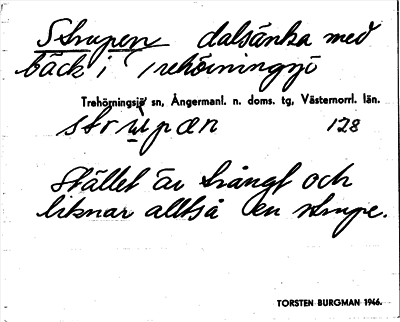 Strupen dalsänka med
bäck i Trehörningsjö
Trehörningsjö sn, Ångermanl. n. doms. tg, Västernorrl. län.
strupæn 128
Stället är trångt och
liknar alltså en strupe.
TORSTEN BURGMAN 1946.